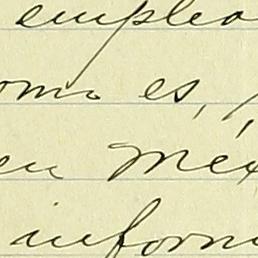 emplea
omo es,
en Méx
inform